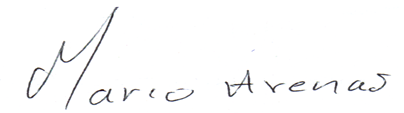 Mario Arenas